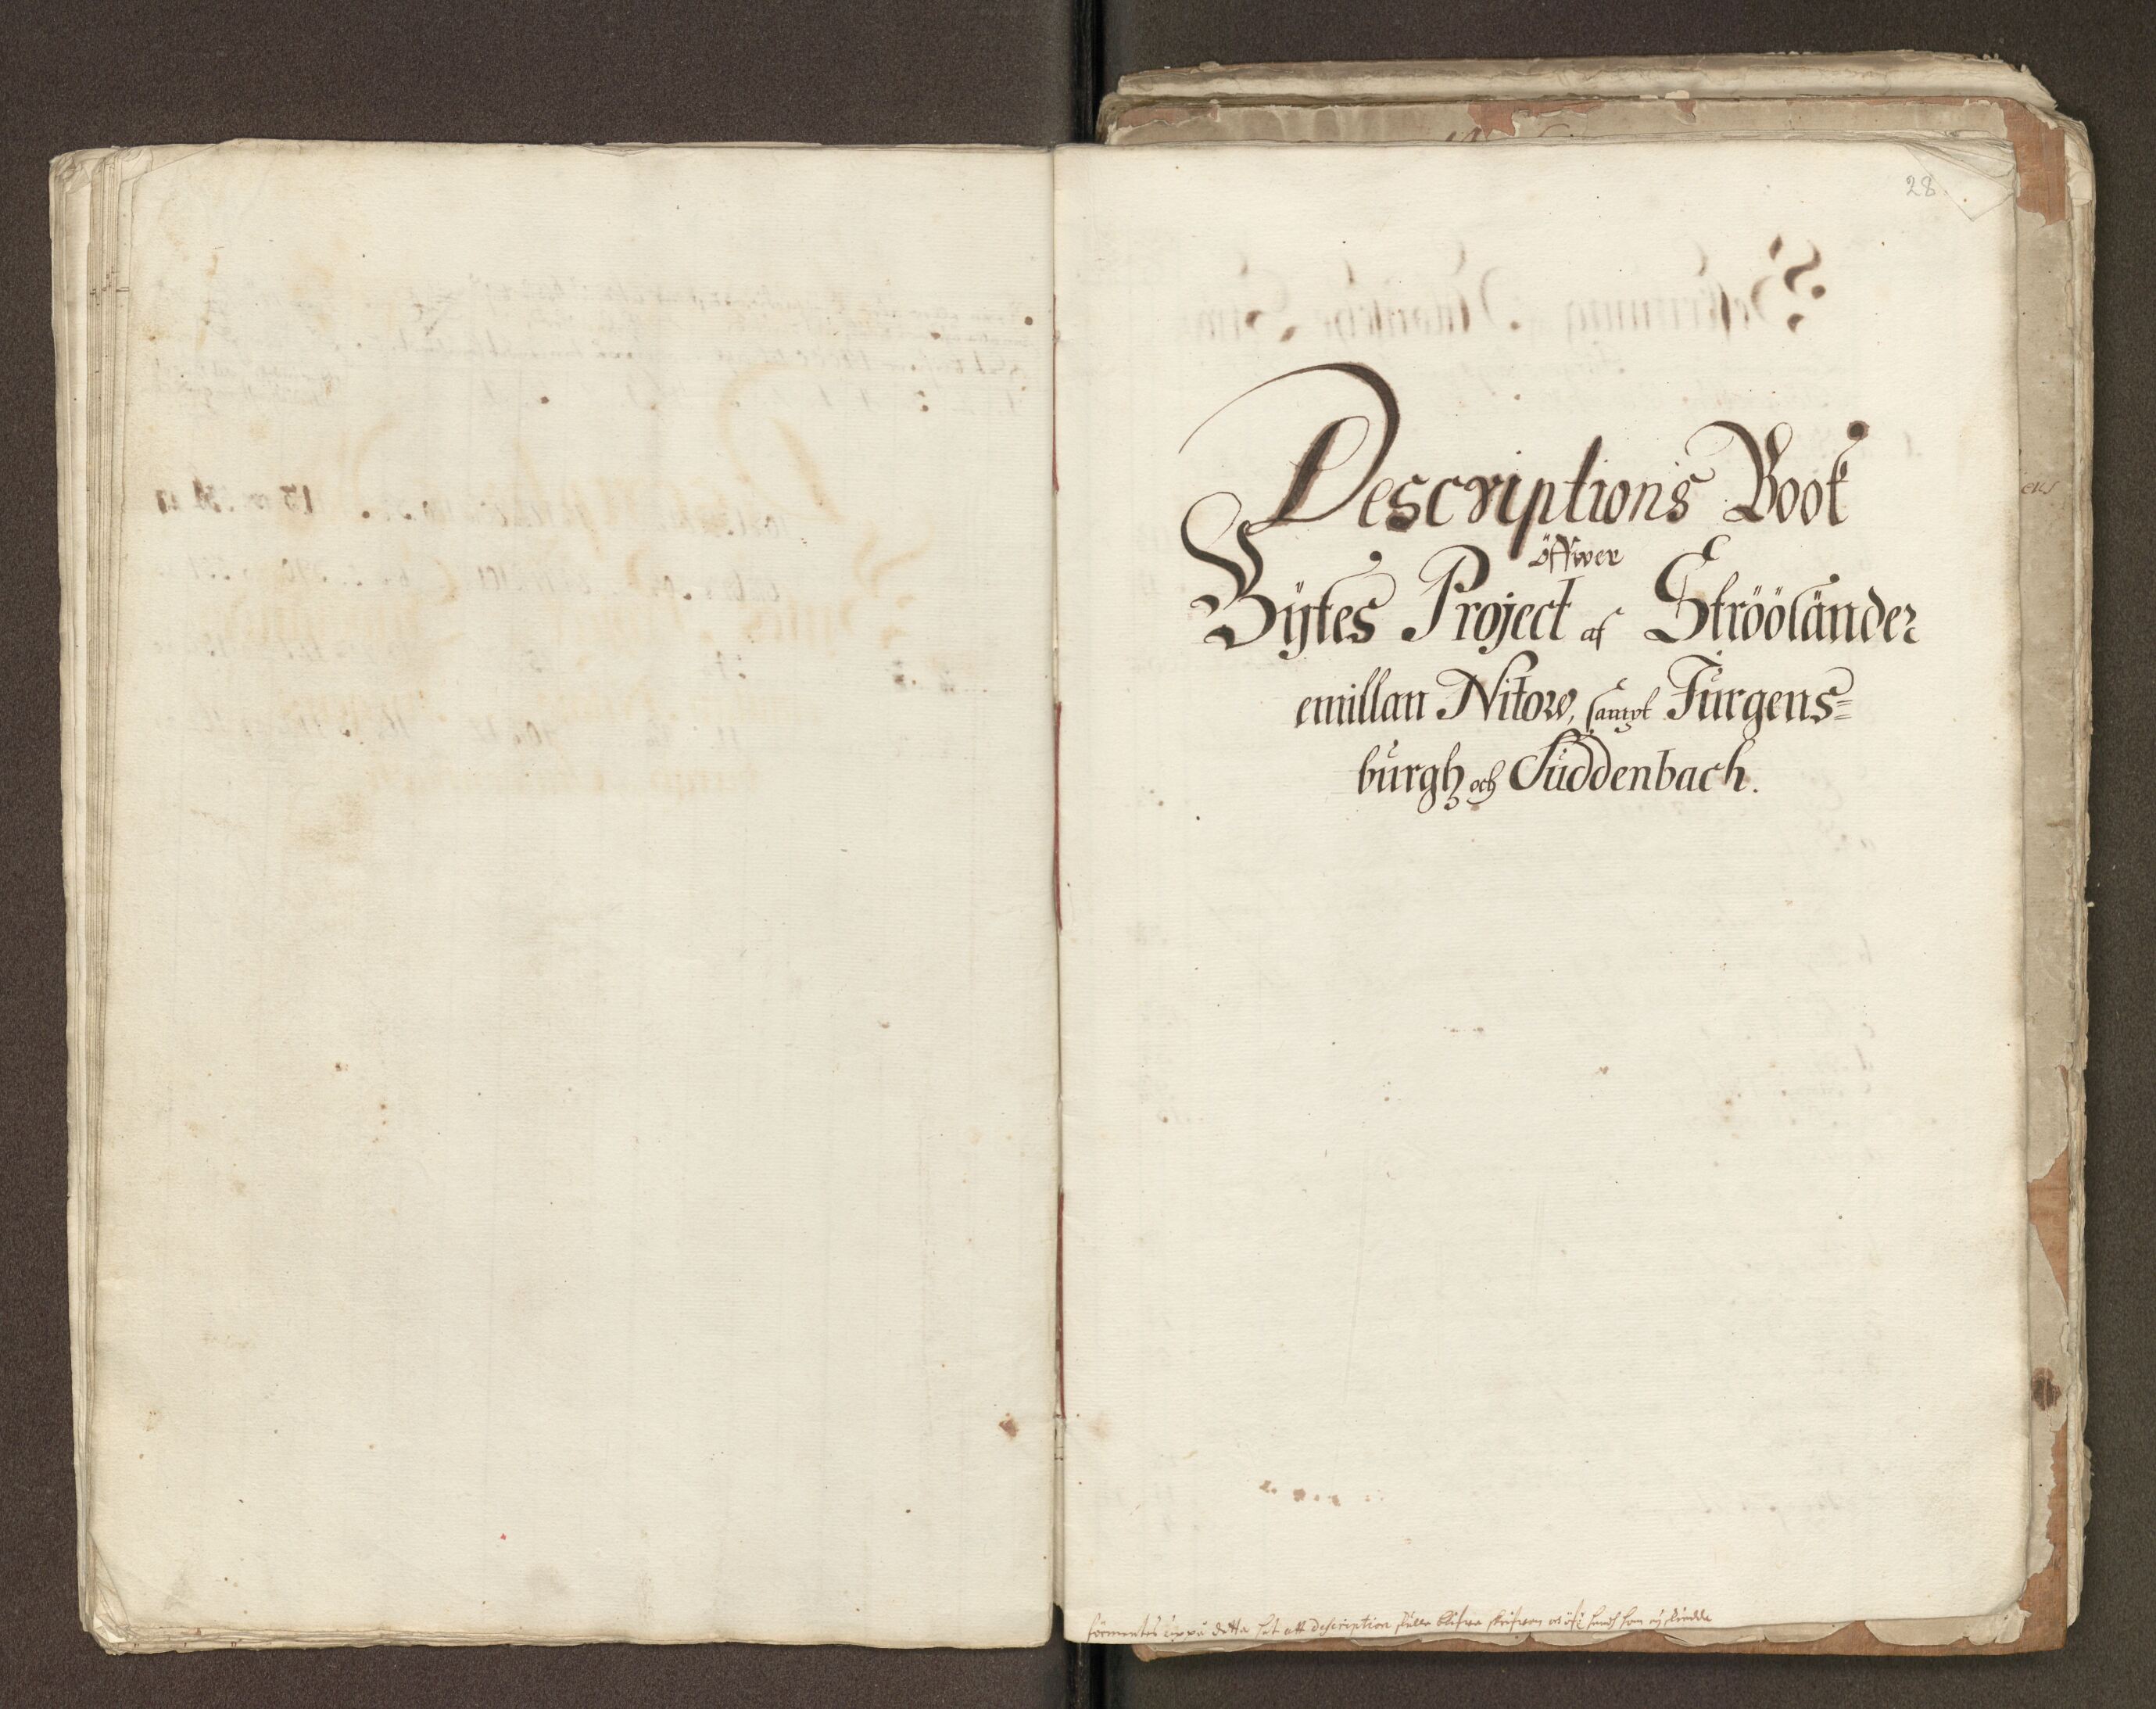 28.
Descriptions Book
öffwer
Bÿtes Project af Ströölӓnder
emillan Nitow, sampt Jürgens=
bürgh och Süddenbach.
detta att description